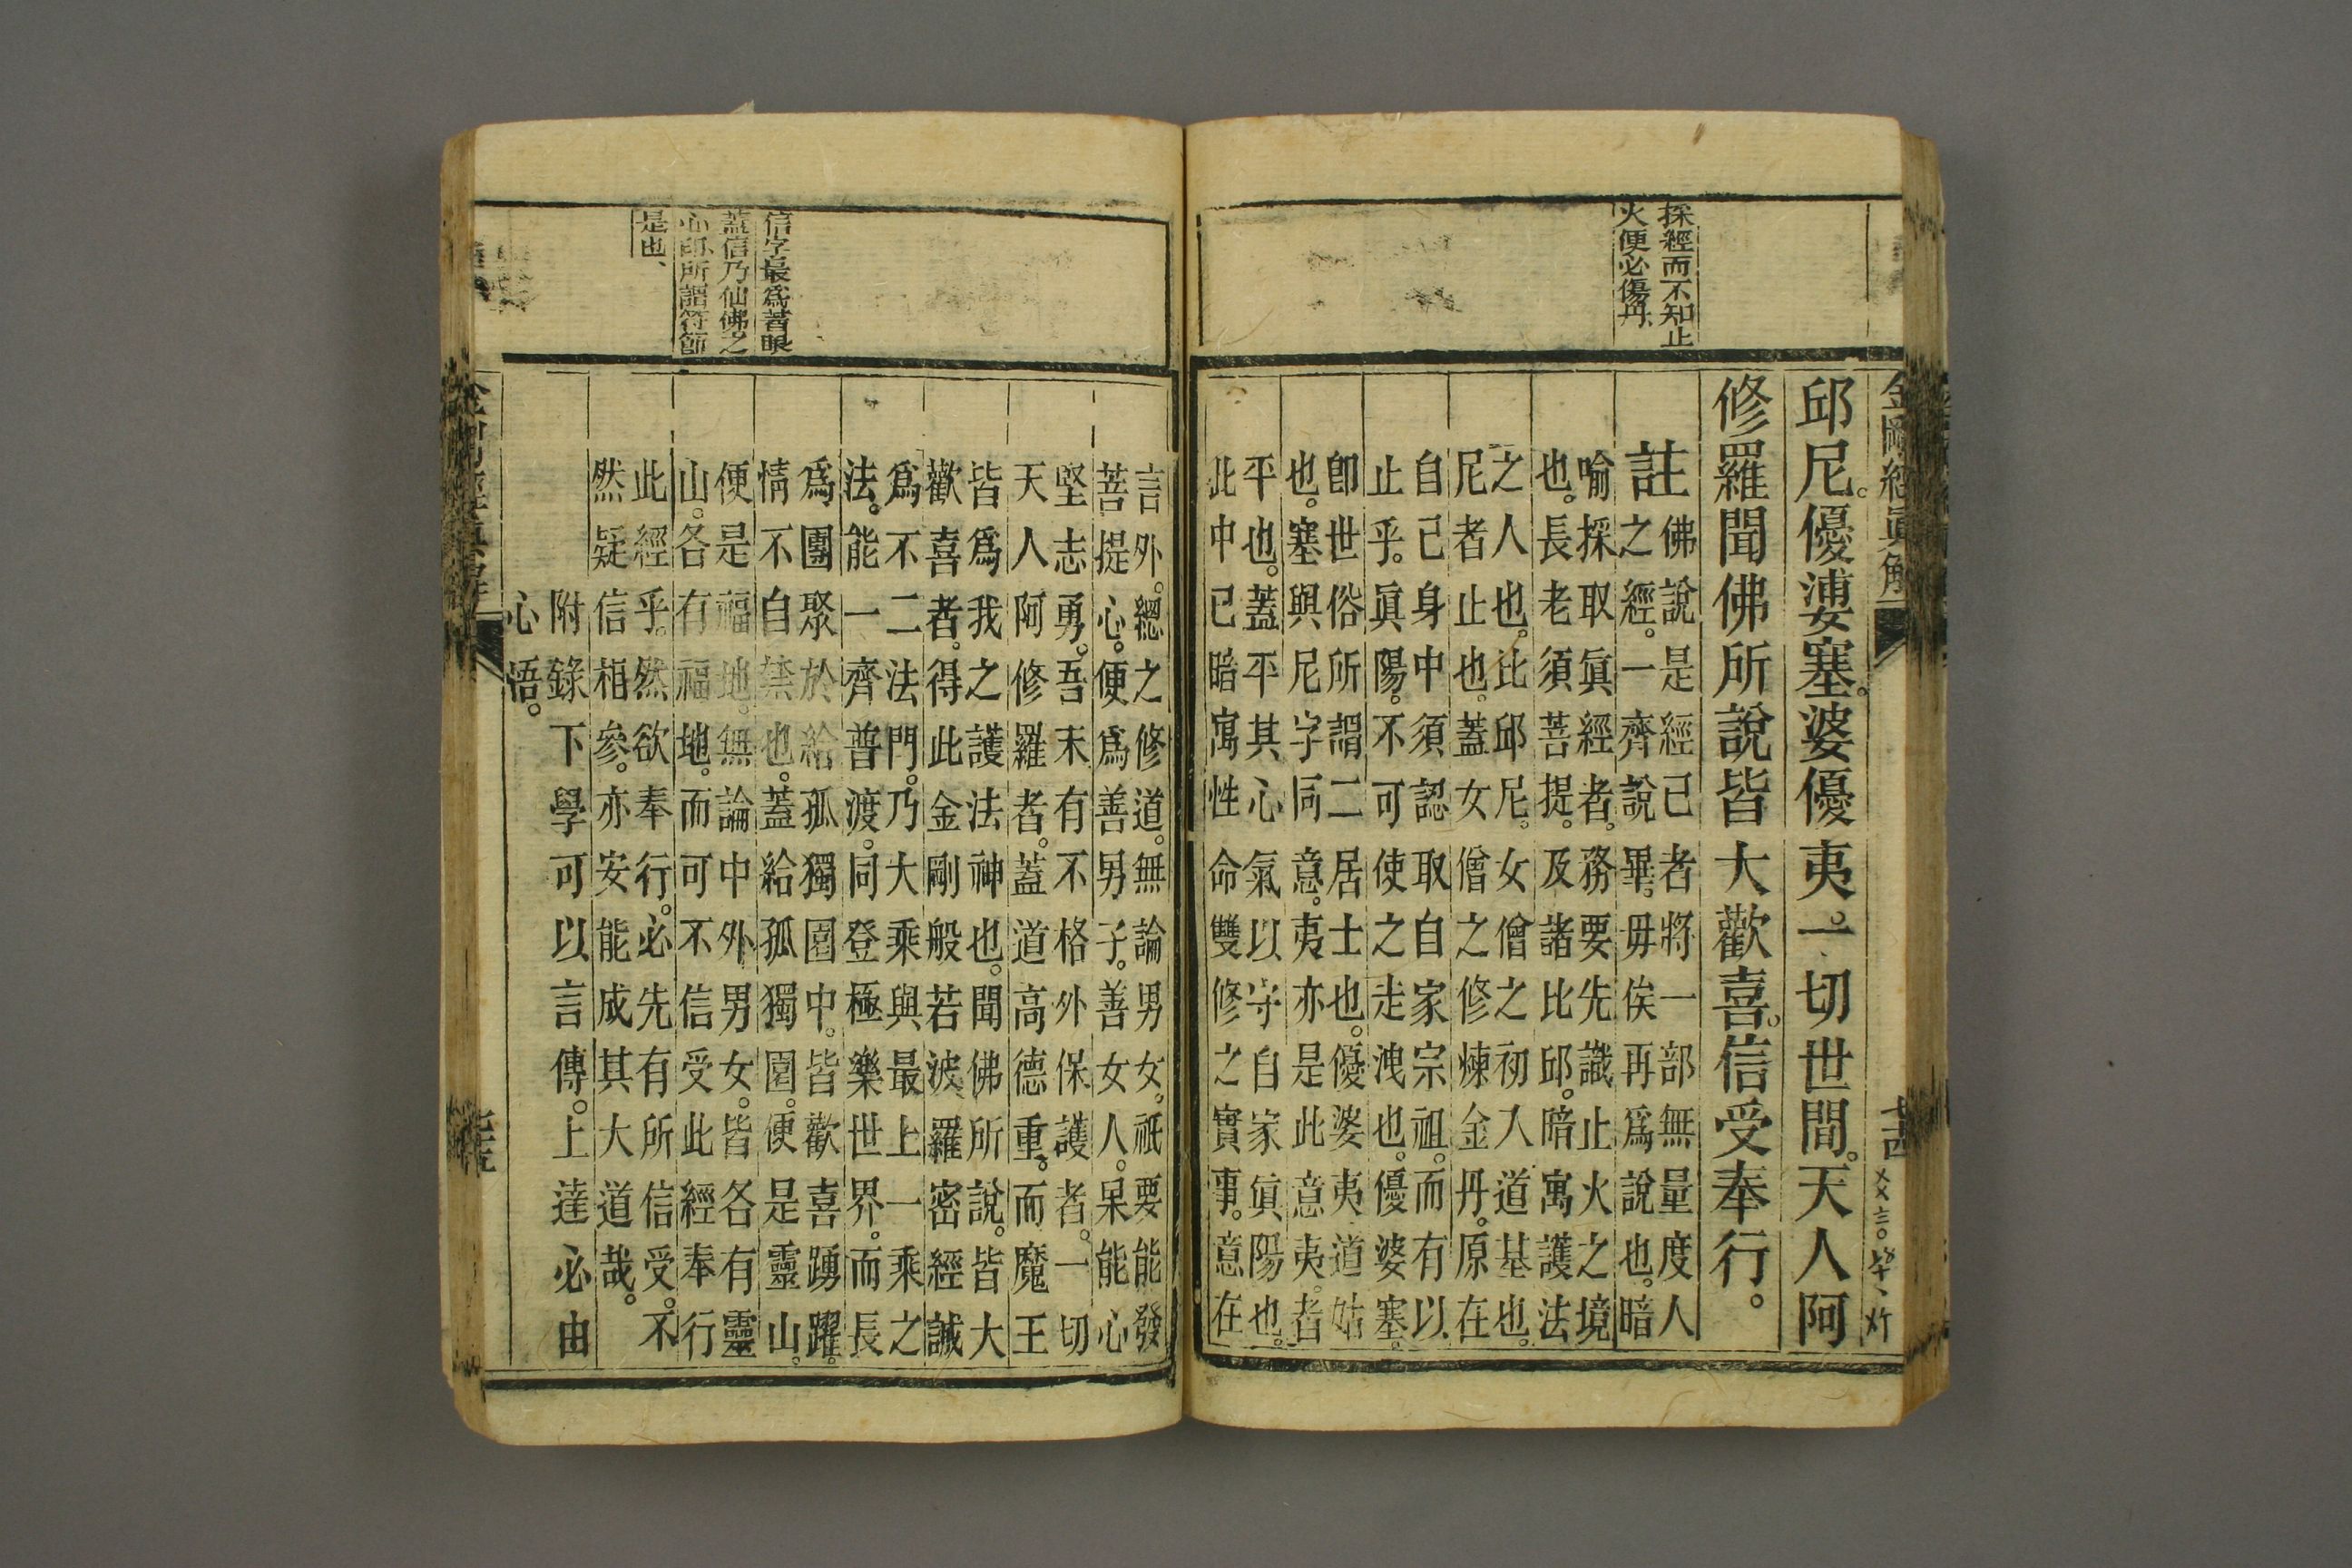 金剛經眞解
採經而不知止
火便必傷丹、
邱尼。優婆塞。婆優夷。一切世間。天人阿
修羅聞佛所說皆大歡喜。信受奉行。
註
佛說是經已者將一部無量度人
之經。一齊說畢。毋俟再爲說也。暗
喻採取眞經者。務要先識止火之境
也。長老須菩提。及諸比邱。暗寓護法
之人也。比邱尼。女僧之初入道基也。
尼者止也。蓋女僧之修煉金丹。原在
自己身中須認取自家宗祖。而有以
止乎。眞陽。不可使之走洩也。優婆塞。
卽世俗所謂二居士也。優婆夷道姑
也。塞與尼字同意。夷亦是此意夷。者
平也。蓋平其心氣以守自家眞陽也。
此中已暗寓性命雙修之實事。意在
信字最爲著眼
蓋信乃仙佛之
心印所謂符節
是也、
言外。總之修道。無論男女。祇要能發
菩提心。便爲善男子。善女人。果能心
堅志勇。吾未有不格外保護者。一切
天人阿修羅者。蓋道高德重。而魔王
皆爲我之護法神也。聞佛所說。皆大
歡喜者。得此金剛般若波羅密經誠
爲不二法門。乃大乘與最上一乘之
法。能一齊普渡。同登極樂世界。而長
爲團聚於給孤獨園中。皆歡喜踴躍。
情不自禁也。蓋給孤獨園。便是靈山。
便是福地。無論中外男女。皆各有靈
山。各有福地。而可不信受此經奉行
此經乎。然欲奉行。必先有所信受。不
然疑信相參。亦安能成其大道哉。
附錄下學可以言傳。上達必由
心悟。